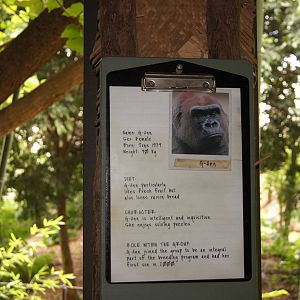 Name: G-Ann
Sex: Female
Born: June 1979
Weight: 98 kg
G-Ann
DIET:
G-Ann particularly
likes fresh fruit but
also loves raisin bread
CHARACTER:
G-Ann is intelligent and inquisitive.
She enjoys solving puzzles.
ROLE WITHIN THE GROUP
G-Ann joined the group to be an integral
part of the breeding program and had her
first son in 2000.